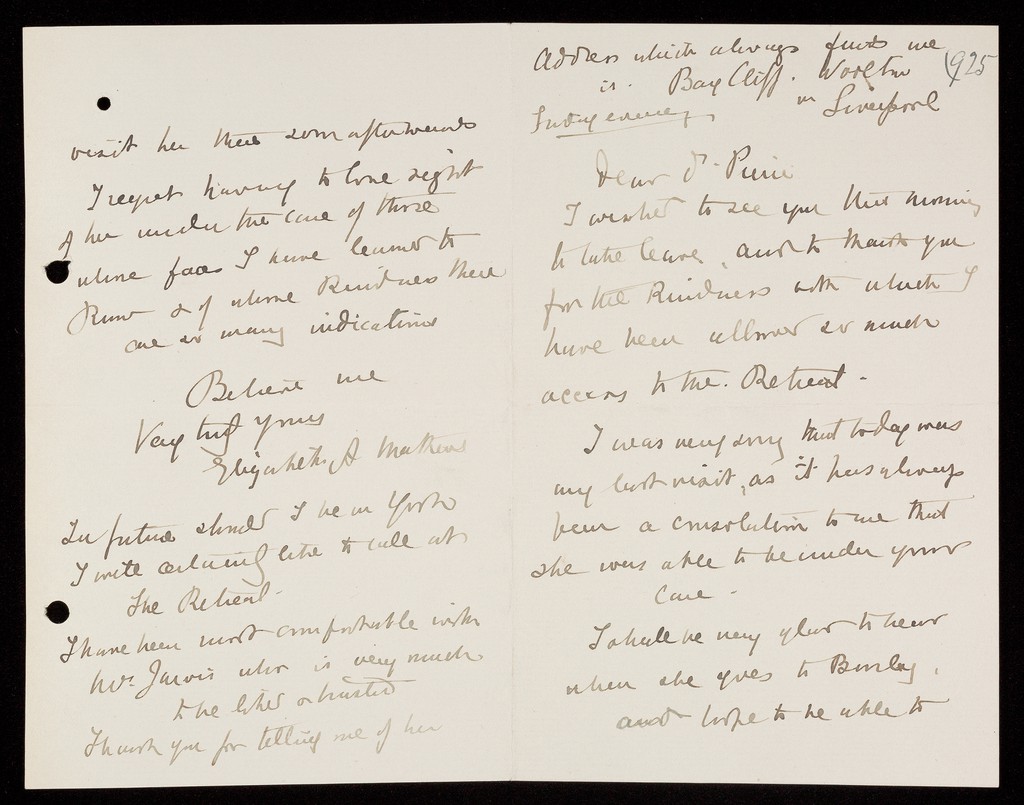 Address which always finds me
is. Bay Cliff. Woolton
nr Liverpool
925
Friday evening
Dear Dr. Pierce
I wished to see you this morning
to take leave, and to thank you
for the kindness with which I
have been allowed so much
access to the. Retreat -
I was very sorry that today was
my last visit, as it has always
been a consolation to me that
she was able to be under your
care -
I shall be very glad to hear
when she goes to
and hope to be able to
visit her there soon afterwards
I regret having to lose sight
of her under the care of those
whose faces I have learned to
know & of whose kindness there
are so many indications
Believe me
Very truly yours
Elizabeth A Mathews
In future should I be in York
I will certainly like to call at
The Retreat -
I have been most comfortable with
Mrs. Jarvis who is very much
to be liked & trusted
Thank you for telling me of her